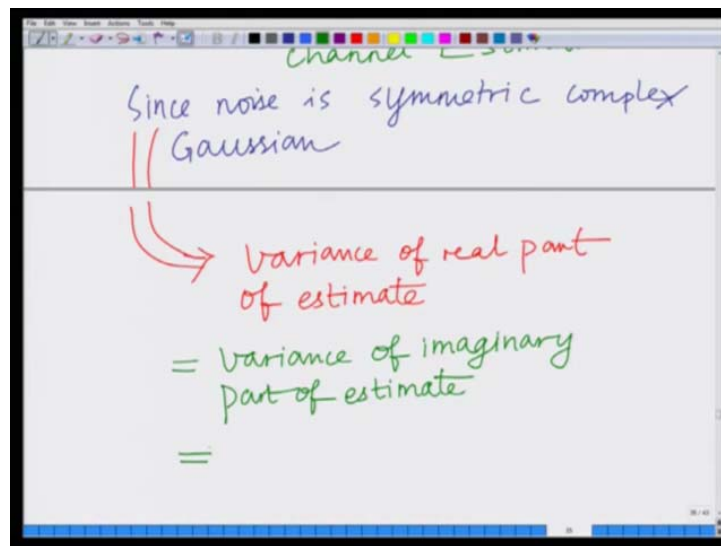 File Edit View Insert Actions Tools Help
Channel
Since noise is symmetric complex
Gaussian
variance of real part
of estimate
= variance of imaginary
part of estimate
=